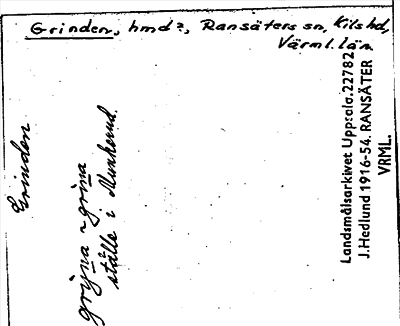 Grinden, hmd?, Ransäters sn, Kils hd,
Värml. län.
Grinden
gryna ~ grina
ställe i Munkerud.
Landsmålsarkivet Uppsala. 22782
J. Hedlund 1916-54. RANSÄTER
VRML.